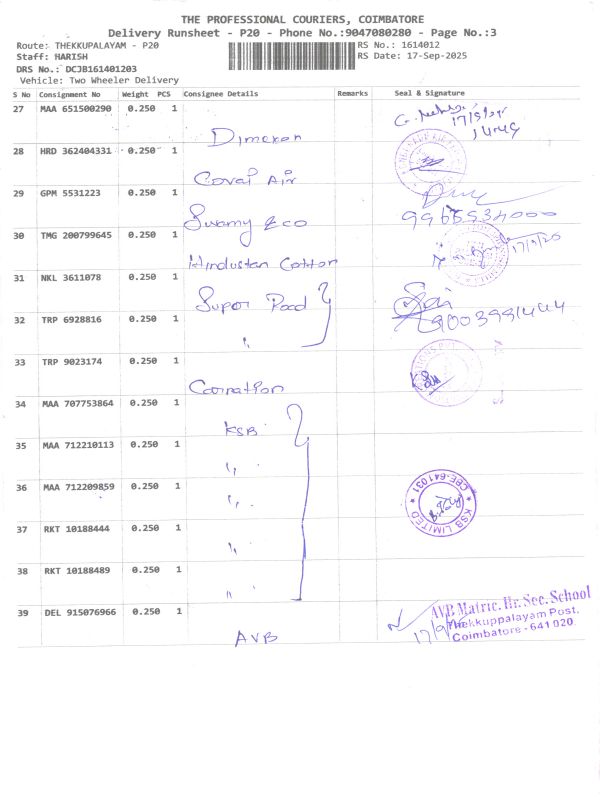 THE PROFESSIONAL COURIERS, COIMBATORE
Delivery Runsheet - P20 - Phone No.:9047080280 - Page No.:3
Route: THEKKUPALAYAM - P20
RS No.: 1614012
Staff: HARISH
RS Date: 17-Sep-2025
DRS No.: DCJB161401203
Vehicle: Two Wheeler Delivery
S No Consignment No Weight PCS Consignee Details Remarks Seal & Signature
27 MAA 651500290 0.250 1
17/9/25
Dimekon
28 HRD 362404331 0.250 1
Covai Air
29 GPM 5531223 0.250 1
Swamy & co
30 TMG 200799645 0.250 1
17/9/25
Hindustan Cotton
31 NKL 3611078 0.250 1
Super Food
Sai
32 TRP 6928816 0.250 1
9003991444
"
33 TRP 9023174 0.250 1
Carnation
34 MAA 707753864 0.250 1
KSB
35 MAA 712210113 0.250 1
"
36 MAA 712209859 0.250 1
"
KSB LIMITED ★ CBE-641031 ★
37 RKT 10188444 0.250 1
"
38 RKT 10188489 0.250 1
"
39 DEL 915076966 0.250 1
AVB
AVB Matric. Hr. Sec. School
Thekkuppalayam Post,
Coimbatore - 641 020.